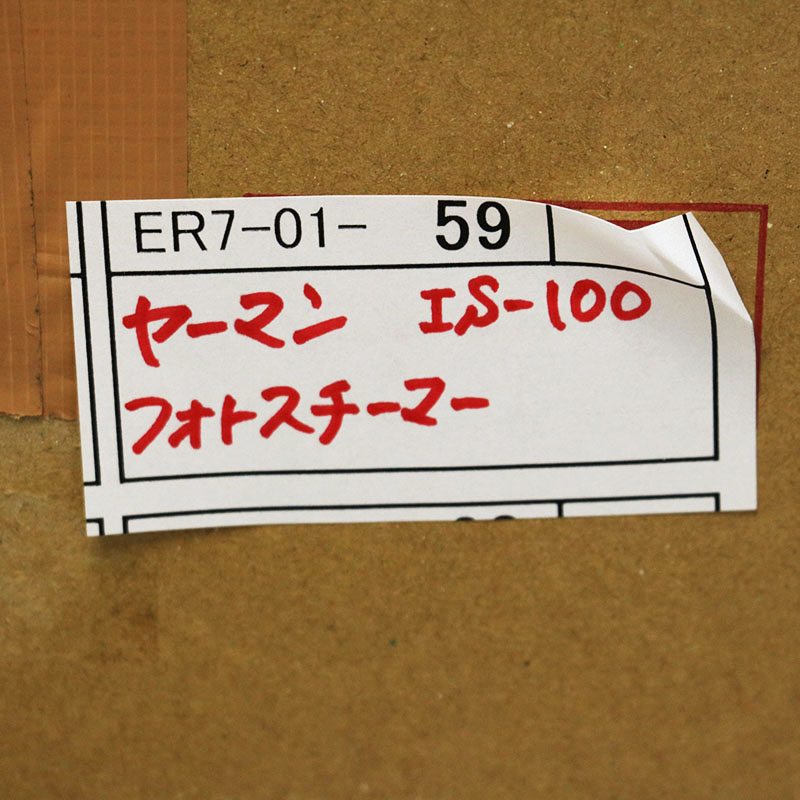 ER7-01- 59
ヤーマン IS-100
フォトスチーマー